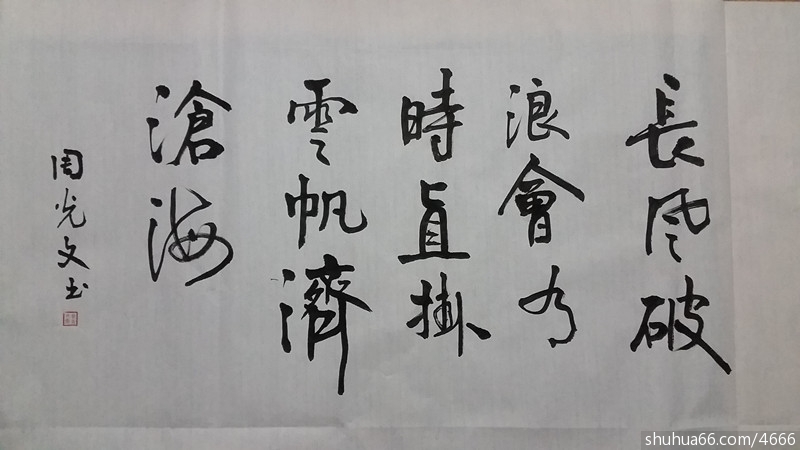 長風破
浪會有
時直掛
雲帆濟
滄海
周光文书
shuhua66.com/4666